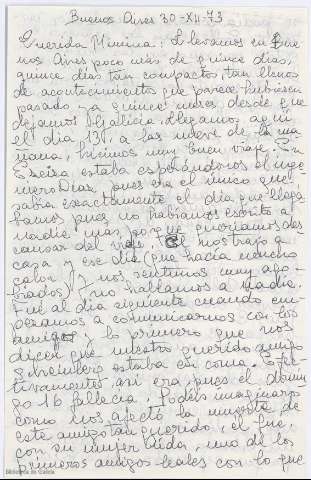 Buenos Aires 30-XII-73
Querida Mimina: Llevamos en Bue
nos Aires poco más de quince días,
quince días tan compactos, tan llenos
de acontecimientos que parece hubiesen
pasado ya quince meses, desde que
dejamos Galicia. Llegamos, aquí
el día 13, a las nueve de la ma
ñana, hicimos muy buen viaje. En
Ezeiza estaba esperándonos el inge
niero Díaz, pues era el único que
sabía exactamente el día que llegá
bamos pues no habíamos escrito a
nadie más, porque queríamos des
cansar del viaje. El nos trajo a
casa y ese día (que hacía mucho
calor y nos sentimos muy ago
biados) no hablamos a nadie.
Fué al día siguiente cuando em
pezamos a comunicarnos con los
amigos, y lo primero que nos
dicen que nuestro querido amigo
estaba en coma. Efec
tivamente así era, pues el domin
go 16 fallecía. Podéis imaginaros
como nos afectó la muerte de
este amigo tan querido, el fue,
con su mujer uno de los
primeros amigos leales con lo que
Biblioteca de Galicia